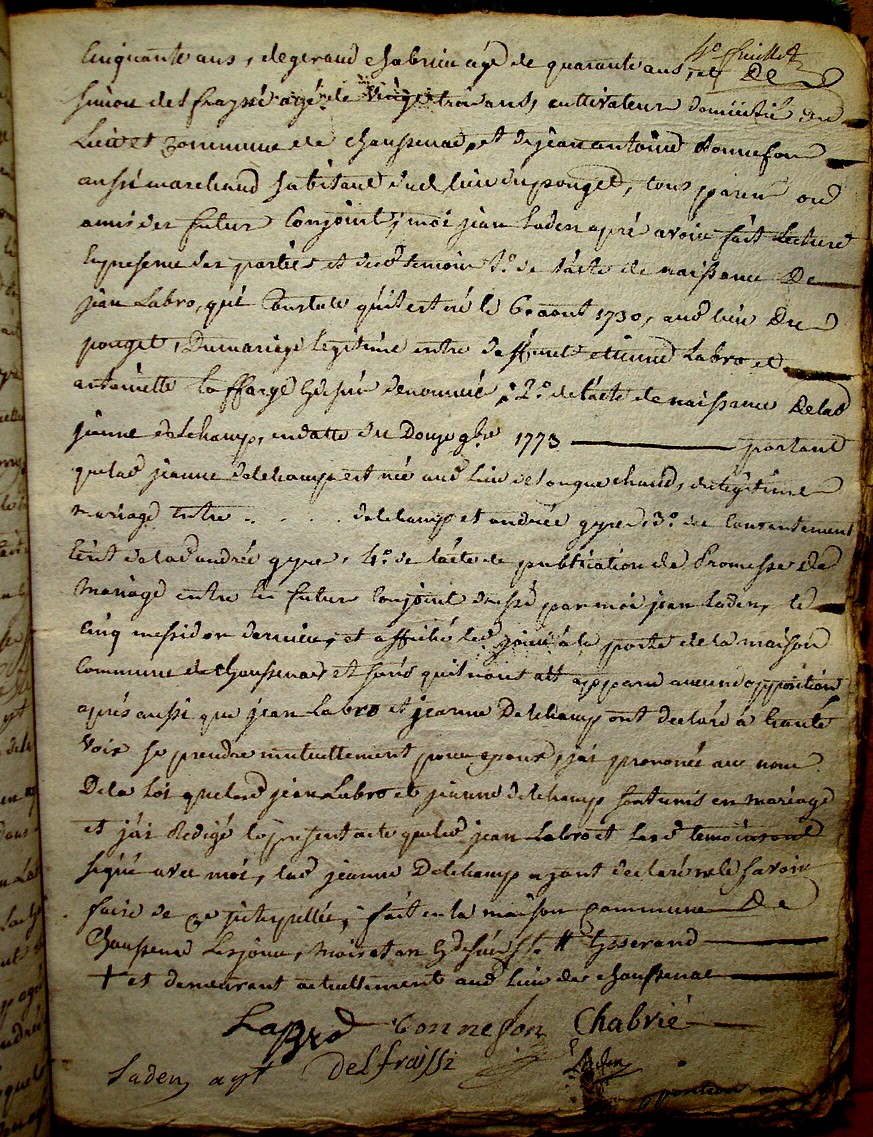 4e feuillet
Cinquante ans, de geraud chabrie agé de quarante ans, et De
simon delfraysse agé de vingt trois ans, cultivateur domicilié au
Lieu et commune de chaussenac, et de jean antoine Bonnefon
aussi marchand habitant dud lieu du pouget, tous paren ou
amis des futur Conjoint; moi jean Laden apré avoir fait Lecture
en presence des parties et desd temoin 1o. de l'acte de naissance De
jean Labro, qui Constate qu'il est né le 6 aout 1730, aud lieu Du
pouget, Du mariage legitime entre deffunt etienne Labro et
antoinette Laffarge cy dessus denommé; 2o. de l'acte de naissance De lad
jeanne delchamp, en datte du Douze 9bre 1773 portant
que lad jeanne delchamp est née aud lieu de longuechaud, du legitime
mariage entre .. . . . delchamp et andrée gyre; 3o. du Consentement
de lad andrée gyre, 4o. de l'acte de publication de Promesse de
Mariage entre les futur Conjoint dressé par moi jean Laden, le
Cinq messidor dernier, et affiché led jour à la porte de la maison
Commune de chaussenac, et sans qu'il nous ait apparu aucune opposition
aprés aussi que jean Labro et jeanne Delchamp ont declaré à haute
Voix se prendre mutuellement pour epoux, j'ai prononcé au nom
De la Loi que led jean Labro et jeanne delchamp sont unis en mariage
et j'ai Redigé le present acte que led jean Labro et Lesd temoin ont
signé avec moi, lad jeanne Delchamp ayant declaré ne le savoir
faire de ce interpellée; fait en la maison commune De
Chaussenac Les jour, mois et an cy dessus Tysserand
+ et demeurant actuellement aud Lieu de chaussenac
LaBro Bonnefon Chabrié
Laden agt Delfraissi Laden